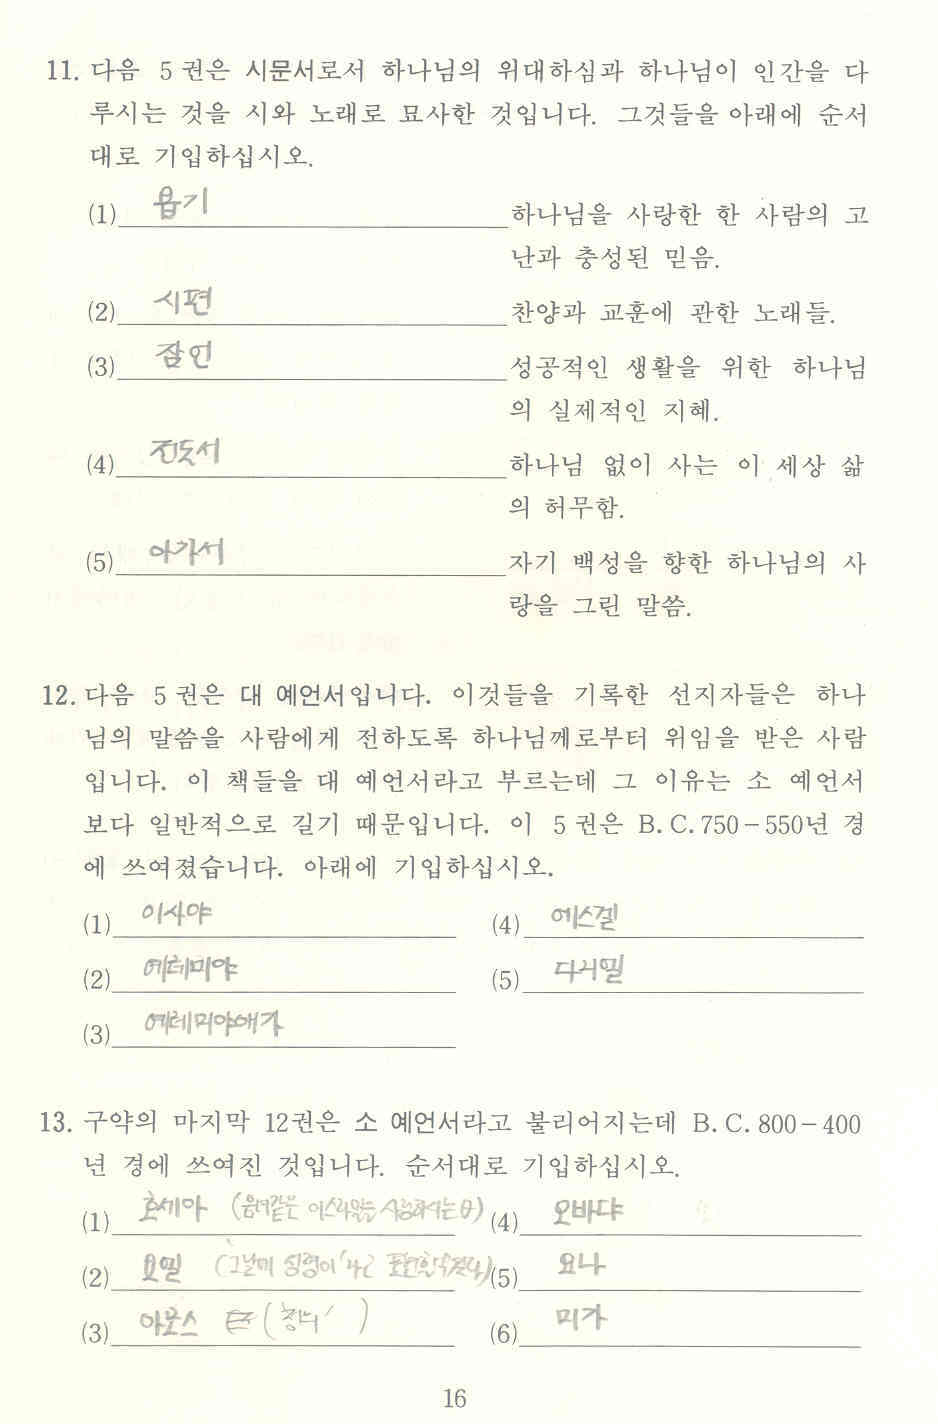 11. 다음 5권은 시문서로서 하나님의 위대하심과 하나님이 인간을 다
루시는 것을 시와 노래로 묘사한 것입니다. 그것들을 아래에 순서
대로 기입하십시오.
(1) 욥기 하나님을 사랑한 한 사람의 고
난과 충성된 믿음.
(2) 시편 찬양과 교훈에 관한 노래들.
(3) 잠언 성공적인 생활을 위한 하나님
의 실제적인 지혜.
(4) 전도서 하나님 없이 사는 이 세상 삶
의 허무함.
(5) 아가서 자기 백성을 향한 하나님의 사
랑을 그린 말씀.
12. 다음 5권은 대 예언서입니다. 이것들을 기록한 선지자들은 하나
님의 말씀을 사람에게 전하도록 하나님께로부터 위임을 받은 사람
입니다. 이 책들을 대 예언서라고 부르는데 그 이유는 소 예언서
보다 일반적으로 길기 때문입니다. 이 5권은 B.C. 750-550년 경
에 쓰여졌습니다. 아래에 기입하십시오.
(1) 이사야 (4) 에스겔
(2) 예레미야 (5) 다니엘
(3) 예레미야애가
13. 구약의 마지막 12권은 소 예언서라고 불리어지는데 B.C. 800-400
년 경에 쓰여진 것입니다. 순서대로 기입하십시오.
(1) 호세아 (4) 오바댜
(2) 요엘 (5) 요나
(3) 아모스 (6) 미가
16